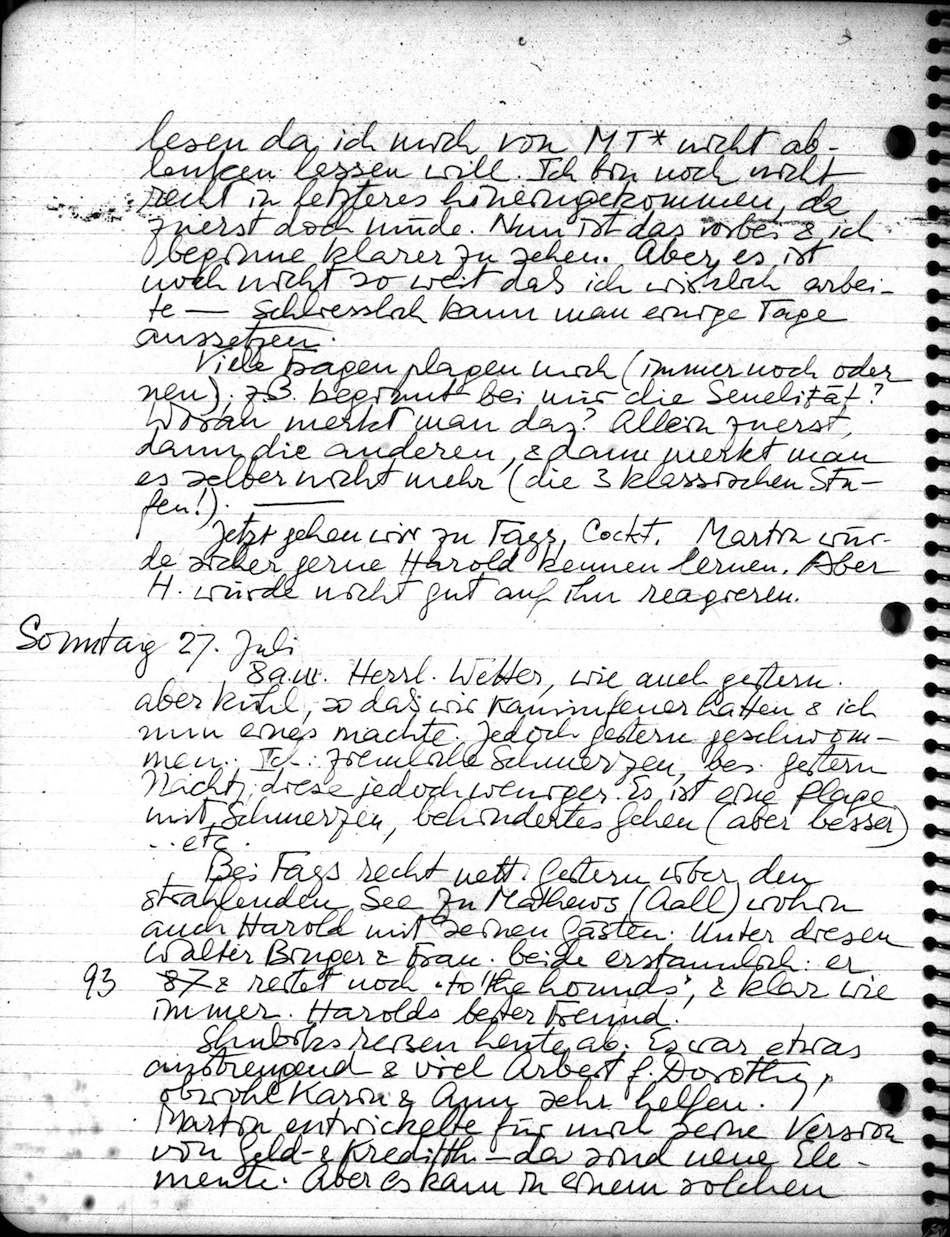 lesen da ich mich von MT* nicht ab-
lenken lassen will. Ich bin noch nicht
recht in letzteres hineingekommen, da
zuerst doch müde. Nun ist das vorbei & ich
beginne klarer zu sehen. Aber es ist
noch nicht so weit das ich wirklich arbei-
te — Schliesslich kann man einige Tage
aussetzen.
Viele Fragen plagen mich (immer noch oder
neu). zB. beginnt bei mir die Senelität?
Woran merkt man das? Allein zuerst,
dann die anderen, & dann merkt man
es selber nicht mehr (die 3 klassischen Stu-
fen!). —
Jetzt gehen wir zu Fags, Cockt. Martin wür-
de sicher gerne Harold kennen lernen. Aber
H. würde nicht gut auf ihn reagieren.
Sonntag 27. Juli
8 a.m. Herrl. Wetter, wie auch gestern.
aber kühl, so daß wir Kaminfeuer hatten & ich
nun eines machte. Jedoch gestern geschwom-
men. Ich: ziemliche Schmerzen, bes. gestern
Nacht, diese jedoch weniger. Es ist eine Plage
mit Schmerzen, behindertes Gehen (aber besser)
... etc.
Bei Fags recht nett. Gestern über den
strahlenden See zu Mathews (Aall) wohin
auch Harold mit seinen Gästen. Unter diesen
Walter Binger & Frau. beide erstaunlich: er
93 87 & reitet noch "to the hounds", & klar wie
immer. Harolds bester Freund.
Shubiks reisen heute ab. Es war etwas
anstrengend & viel Arbeit f. Dorothy,
obwohl Karin & Ann sehr helfen.
Martin entwickelte für mich seine Version
von Geld- & Kreditth. — da sind neue Ele-
mente. Aber es kam in einem solchen